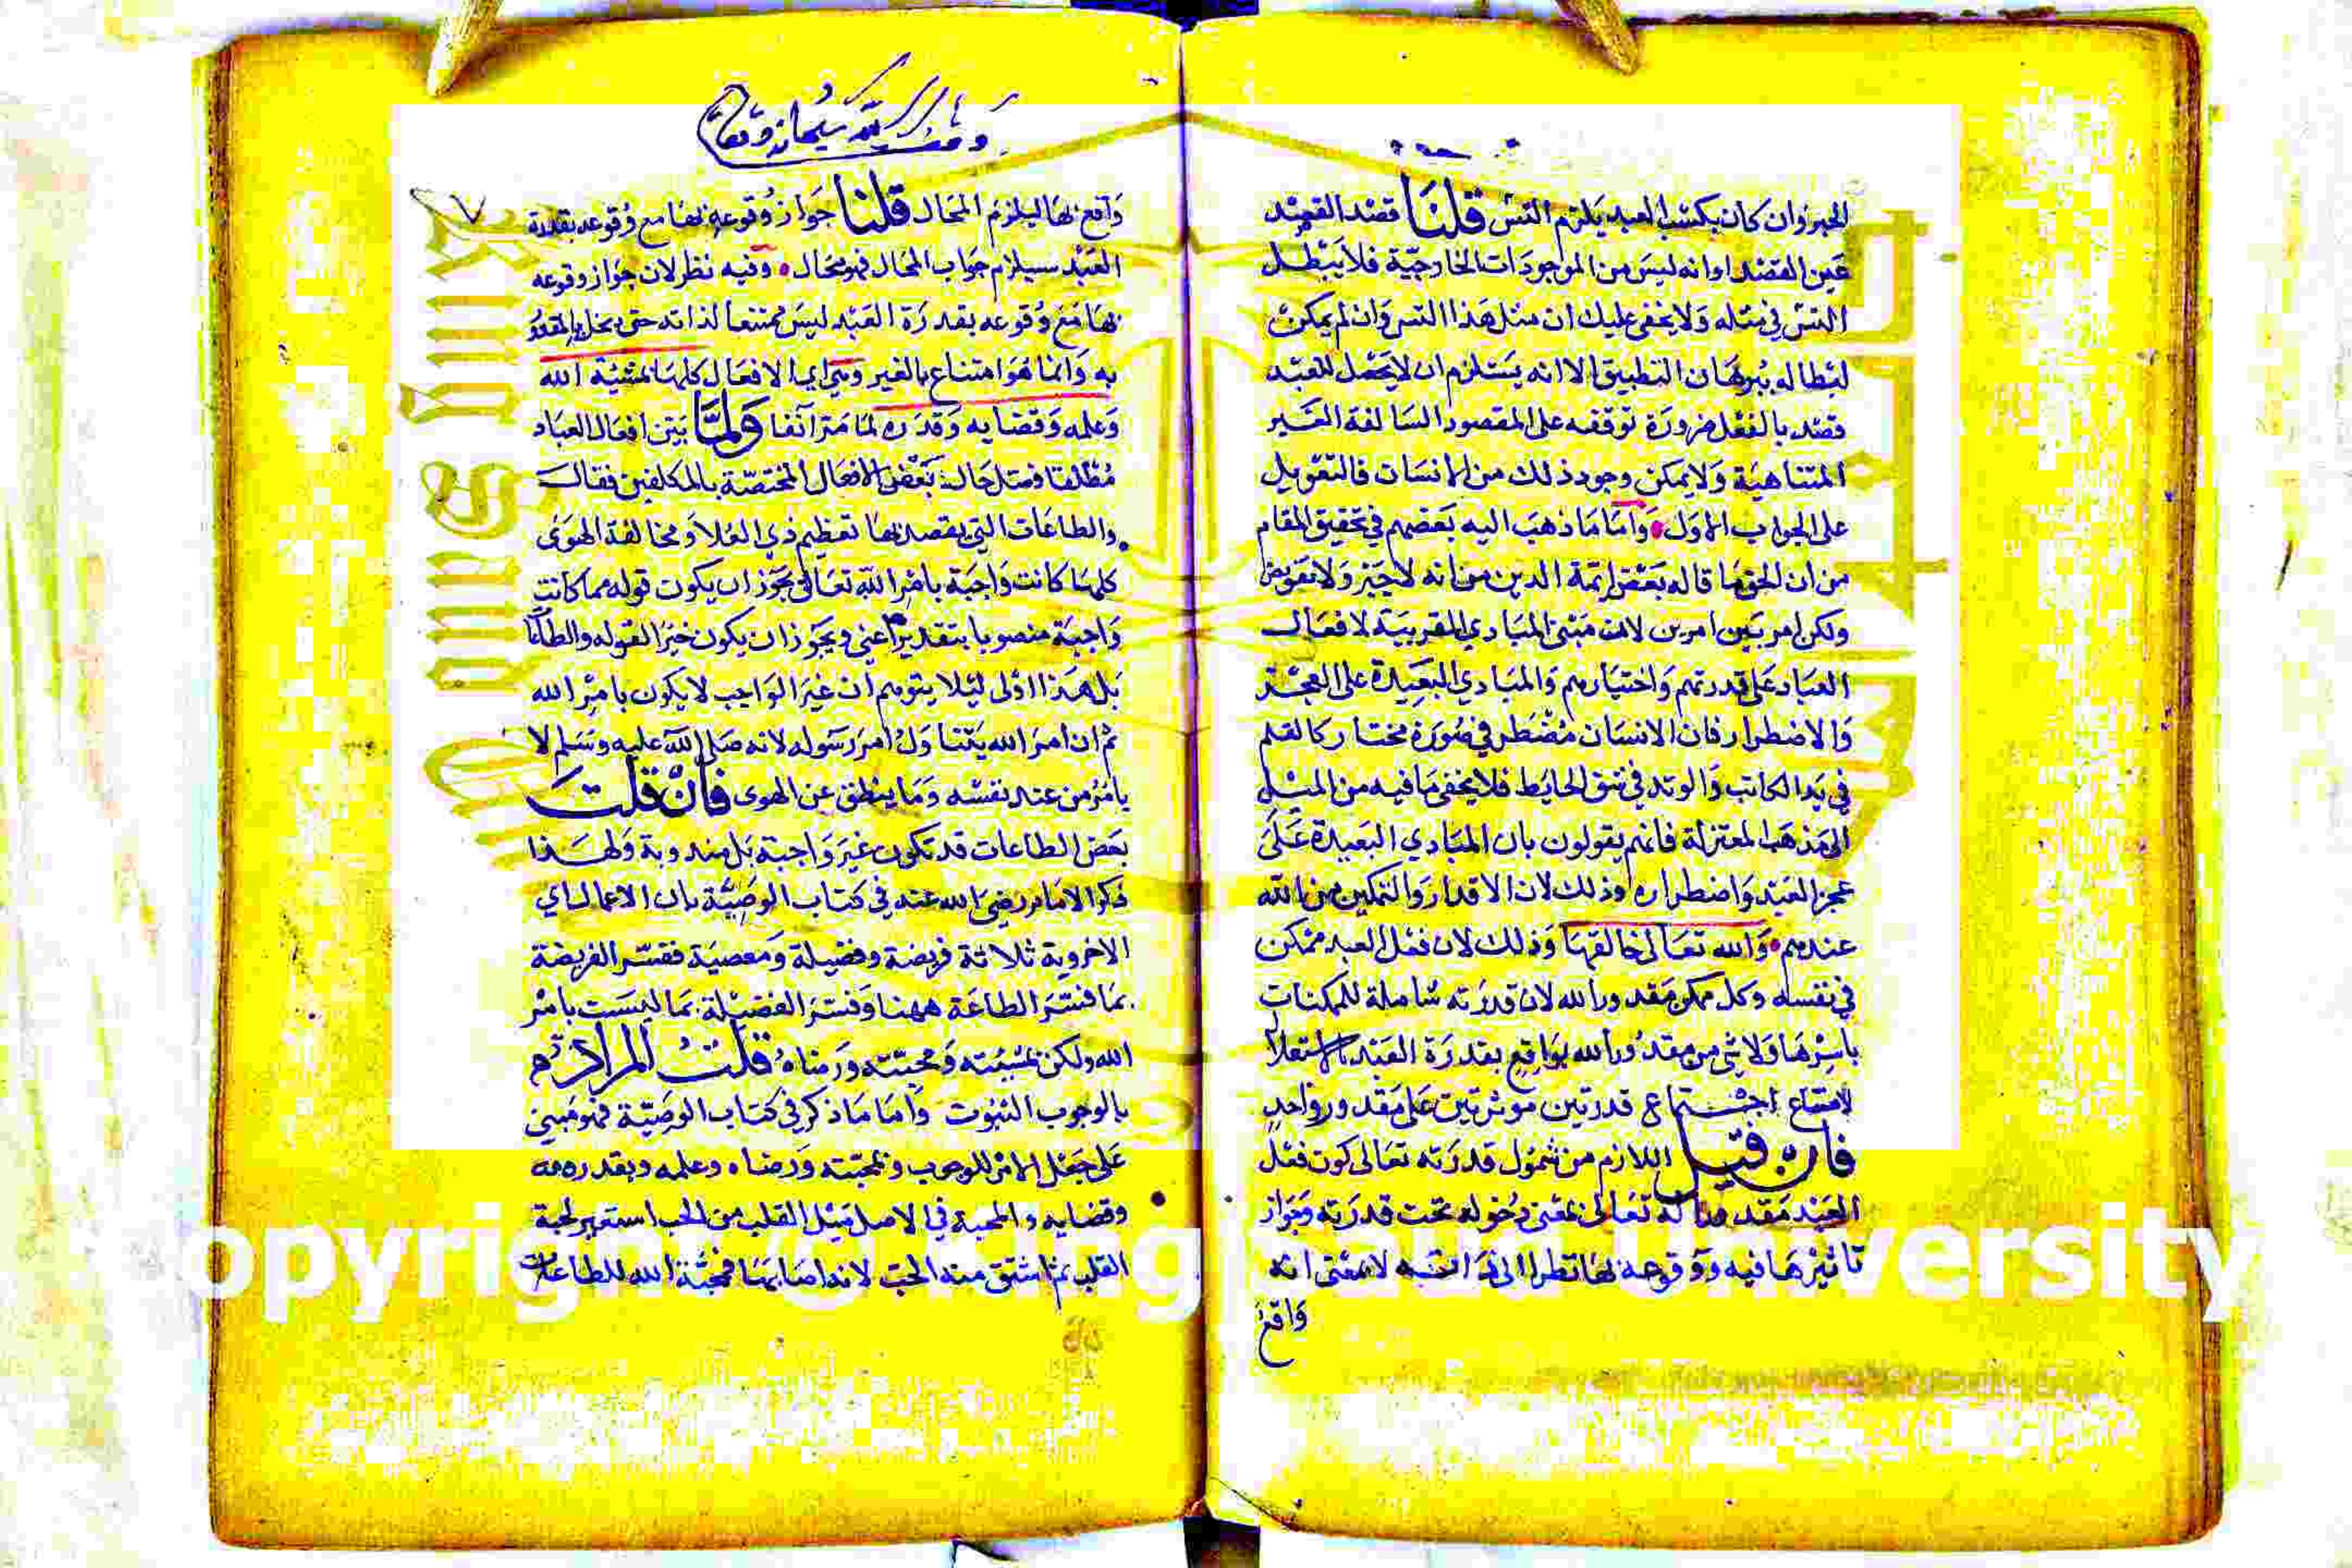 الجبر وان كان بكسب العبد يلزم التس قلنا قصد القصد
عين القصد او انه ليس من الموجودات الخارجية فلا يبطل
التس في مثله ولا يخفى عليك ان مثل هذا التس وان لم يمكن
ابطاله ببرهان التطبيق الا انه يستلزم ان لا يحصل للعبد
قصد بالفعل ضرورة توقفه على المقصود السالفة الغير
المتناهية ولا يمكن وجود ذلك من الانسان فالتعويل
على الجواب الاول واما ما ذهب اليه بعضهم في تحقيق المقام
من ان الحق ما قاله بعض ائمة الدين من انه لا جبر ولا تفويض
ولكن امر بين امرين لان مبنى المبادي القريبة لافعال
العباد على قدرتهم واختيارهم والمبادي البعيدة على العجز
والاضطرار فان الانسان مضطر في صورة مختار كالقلم
في يد الكاتب والوتد في شق الحايط فلا يخفى ما فيه من الميل
الى مذهب المعتزلة فانهم يقولون بان المبادي البعيدة على
عجز العبد واضطراره وذلك لان الاقدار والتمكين من الله
عندهم والله تعالى خالقها وذلك لان فعل العبد ممكن
في نفسه وكل ممكن مقدور الله لان قدرته شاملة للممكنات
باسرها ولا شي من مقدور الله بواقع بقدرة العبد
لامتناع اجتماع قدرتين موثرتين على مقدور واحد
فان قيل اللازم من شمول قدرته تعالى كون فعل
العبد مقدورا له تعالى بمعنى دخوله تحت قدرته وجواز
تاثيرها فيه ووقوعه بها نظرا الى ذاته لا بمعنى انه
واقع
واقع بها ليلزم المحال قلنا جواز وقوعه بها مع وقوعه بقدرة
العبد سيلزم جواب المحال فهو محال وفيه نظر لان جواز وقوعه
بها مع وقوعه بقدرة العبد ليس ممتنعا لذاته حتى يخل بالمقدو
به وانما هو امتناع بالغير وهي اي الافعال كلها بمشيئة الله
وعلمه وقضايه وقدره لما مر آنفا ولما بين افعال العباد
مطلقا فصل حال بعض الافعال المختصة بالمكلفين فقال
والطاعات التي يقصد بها تعظيم ذي العلا ومخالفة الهوى
كلها كانت واجبة بامر الله تعالى يجوز ان يكون قوله مما كانت
واجبة منصوبا بتقدير اعني ويجوز ان يكون خبرا لقوله والطاعا
بل هذا اولى ليلا يتوهم ان غير الواجب لا يكون بامر الله
ثم ان امر الله يتناول امر رسوله لانه صلى الله عليه وسلم لا
يامر من عند نفسه وما ينطق عن الهوى فان قلت
بعض الطاعات قد تكون غير واجبة بل مندوبة ولهذا
ذكر الامام رضي الله عنه في كتاب الوصية بان الاعمال اي
الاخروية ثلاثة فريضة وفضيلة ومعصية ففسر الفريضة
بما فسر الطاعة ههنا وفسر الفضيلة بما ليست بامر
الله ولكن بمشيئته ومحبته ورضاه قلت المراد
بالوجوب الثبوت واما ما ذكر في كتاب الوصية فهو مبني
على جعل الامر للوجوب وبمحبته ورضاه وعلمه وبقدره
وقضايه والمحبة في الاصل ميل القلب من الحب استعير لحبة
القلب ثم اشتق منه الحب لانه اصابها فمحبة الله للطاعات
Copyright © King Saud University